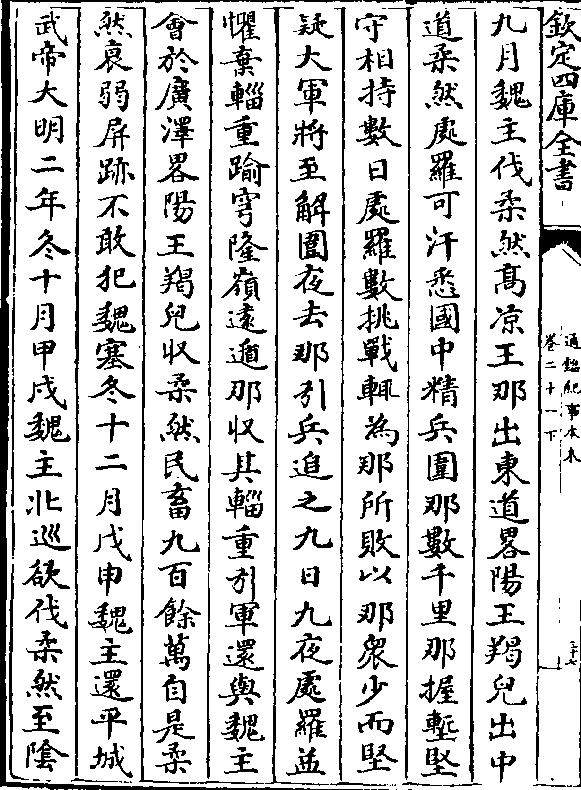 欽定四庫全書
通鑑紀事本末
卷二十一下
三十七
九月魏主伐柔然髙凉王那出東道畧陽王羯兒出中
道柔然處羅可汗悉國中精兵圍那數千里那掘塹堅
守相持數日處羅數挑戰輒為那所敗以那衆少而堅
疑大軍將至解圍夜去那引兵追之九日九夜處羅益
懼棄輜重踰穹隆嶺逺遁那收其輜重引軍還與魏主
會於廣澤畧陽王羯兒收柔然民畜九百餘萬自是柔
然衰弱屏跡不敢犯魏塞冬十二月戊申魏主還平城
武帝大明二年冬十月甲戌魏主北巡欲伐柔然至陰